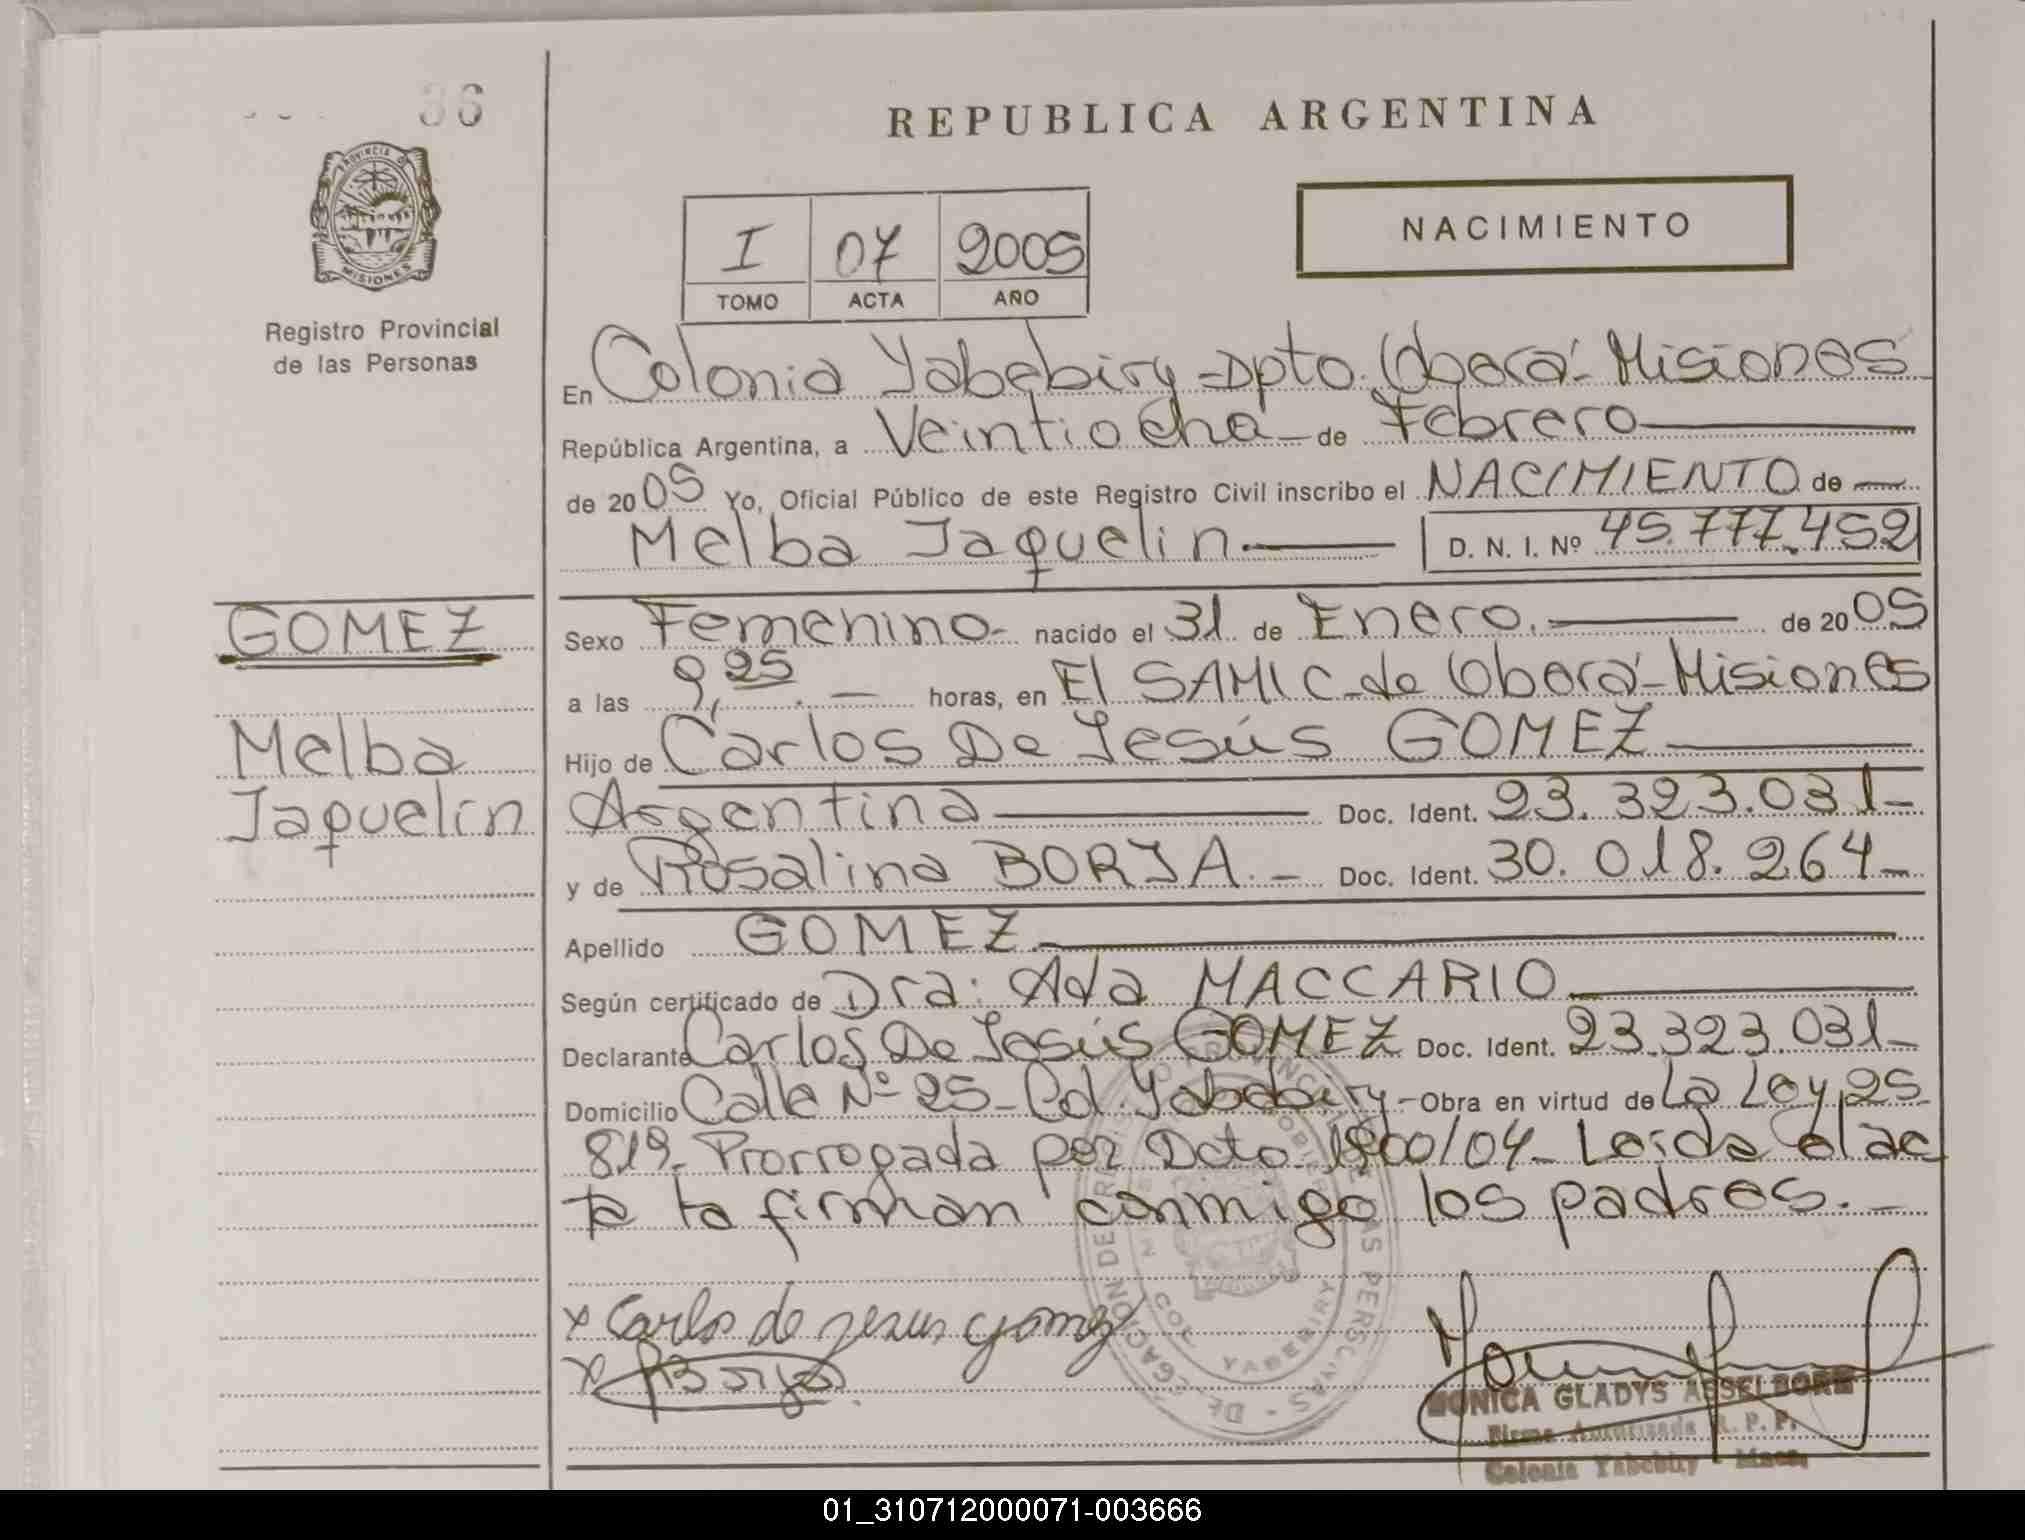 36
REPUBLICA ARGENTINA
PROVINCIA DE
MISIONES
Registro Provincial
de las Personas
I 07 2005
TOMO ACTA AÑO
NACIMIENTO
En Colonia Yabebiry - Dpto. Oberá - Misiones
República Argentina, a Veintiocho de Febrero
de 2005 Yo, Oficial Público de este Registro Civil inscribo el NACIMIENTO de
Melba Jaquelin. D. N. I. Nº 45.777.452
GOMEZ
Melba
Jaquelin
Sexo Femenino- nacido el 31 de Enero. de 2005
a las 9,25. horas, en El SAMIC de Oberá - Misiones
Hijo de Carlos De Jesús GOMEZ
Argentina Doc. Ident. 23.323.031-
y de Rosalina BORJA.- Doc. Ident. 30.018.264-
Apellido GOMEZ.
Según certificado de Dra: Ada MACCARIO
Declarante Carlos De Jesús GOMEZ Doc. Ident. 23.323.031-
Domicilio Calle Nº 25- Col. Yabebiry - Obra en virtud de La Ley 25
819- Prorrogada por Dcto 1800/04- Leída el ac
ta la firman conmigo los padres.-
x Carlos de jesus gomez
x RBorja
COL YABEBIRY
MONICA GLADYS ASSELBORN
Firma Autorizada R. P. P.
Colonia Yabebiry - Mnes.
01_310712000071-003666